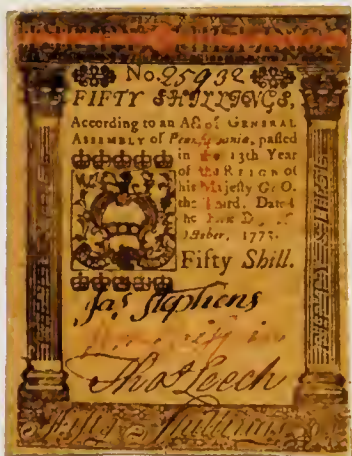 No. 25932
FIFTY SHILLINGS,
According to an Act of GENERAL
ASSEMBLY of passed
in the 13th Year
of the REIGN of
his Majesty GEO.
the Third. Dated
the
October, 1773.
Fifty Shill.
Jas. Stephens
Thos. Leech
Fifty Shillings